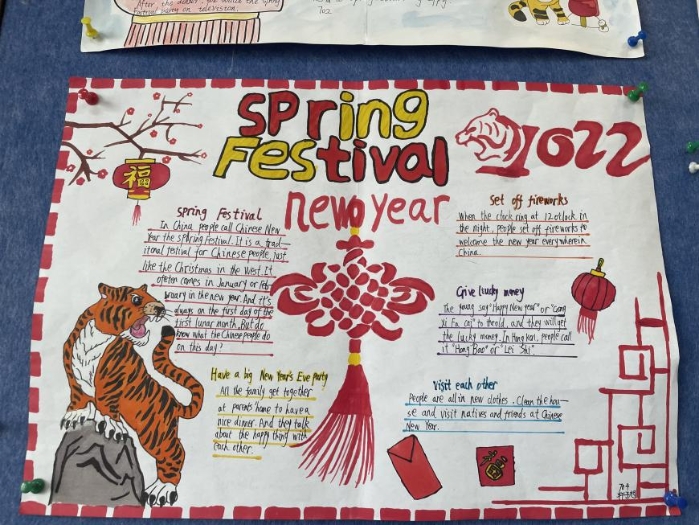 After the dinner, you watch the spring
on television.
Spring
Festival
new year
1022
福
Spring Festival
In China, people call Chinese New
Year the spring festival. It is a tradi-
itonal festival for Chinese people, just
like the Christmas in the West. It
ofeten comes in January or Feb
bruary in the new year. And it's
always on the first day of the
first lunar month. But do
know what the Chinese people do
on this day?
Have a big New Year's Eve party
All the family get together
at parents home to have a
nice dinner. And they talk
about the happy thing with
each other.
Set off fireworks
When the clock ring at 12 o'clock in
the night, people set off fireworks to
welcome the new year everywhere in
China.
Give lucky money
The young say "Happy New year" or "Gong
Xi Fa Cai" to the old, and they will get
the lucky money. In Hong kon, people call
it "Hong Bao" or "Lei Shi"
Visit each other
People are all in new clothes. Clean the hou-
se and visit natives and friends at Chinese
New Year.